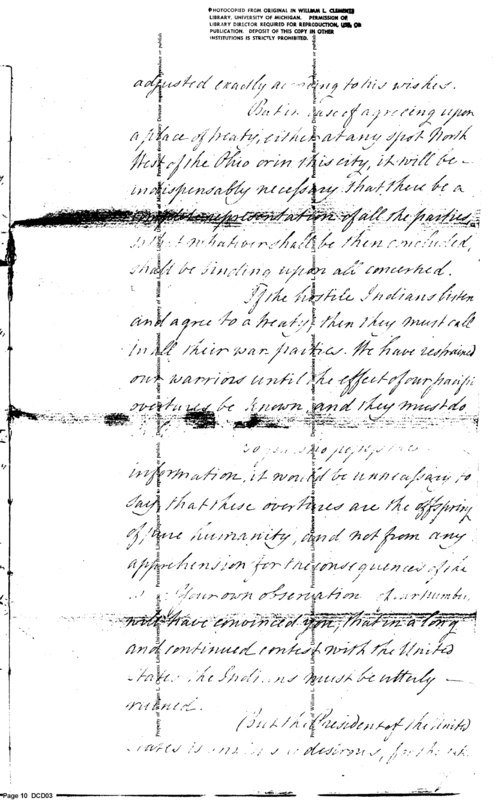 PHOTOCOPIED FROM ORIGINAL IN WILLIAM L. CLEMENTS
LIBRARY, UNIVERSITY OF MICHIGAN. PERMISSION OF
LIBRARY DIRECTOR REQUIRED FOR REPRODUCTION, USE, OR
PUBLICATION. DEPOSIT OF THIS COPY IN OTHER
INSTITUTIONS IS STRICTLY PROHIBITED.
adjusted exactly according to his wishes.
But in case of agreeing upon
a place of treaty, either at any spot North
West of the Ohio or in this city, it will be
indispensably necessary that there be a
representation of all the parties,
whatever shall be then concluded,
shall be binding upon all concerned.
If the hostile Indians listen
and agree to a treaty, then they must call
in all their war parties. We have restrained
our warriors until the effect of our pacific
overtures be known, and they must do
information, it would be unnecessary to
say, that these overtures are the offspring
of pure humanity, and not from any
apprehension for the consequences of the
Your own observation
will have convinced you, that in a long
and continued contest with the United
States the Indians must be utterly
ruined.
But the President of the United
States is desirous,
Page 10 DCD03